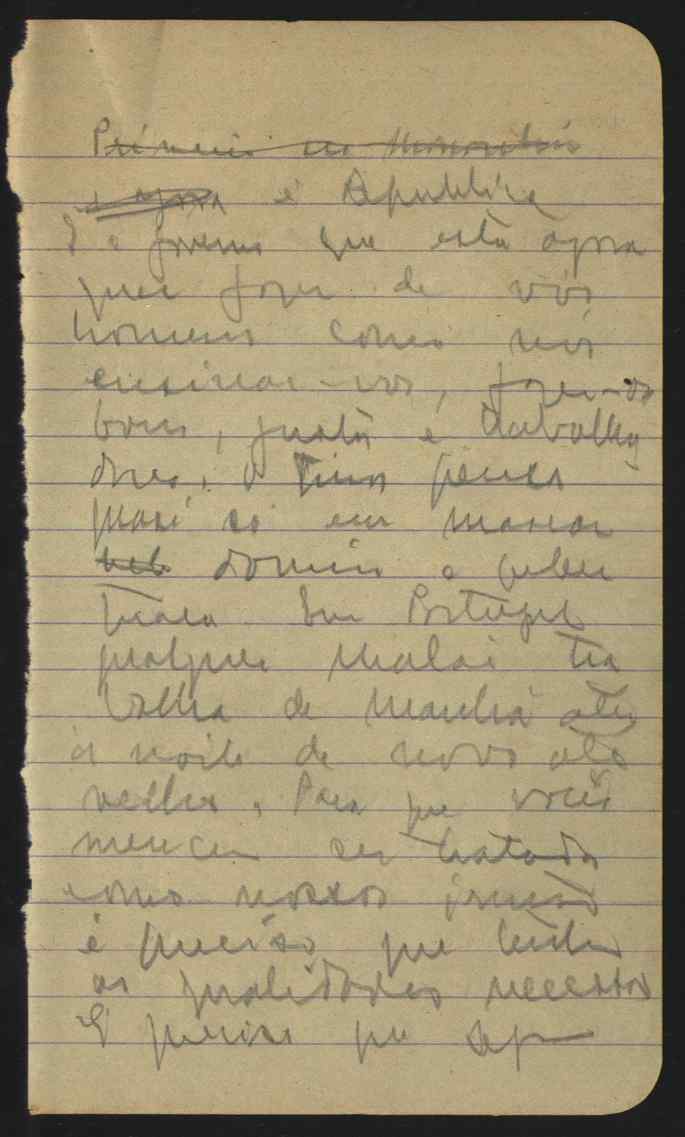 Primeiro na Monarchia
e agora é Republica
E o governo que está agora
quer fazer de vós
homens como nós
ensinar-vos, fazer-os
bons, justos e trabalha
dores. O Timor pensa
quasi só em
domin e beber
Em Portugal
qualquer malai tra
balha de manhã até
á noite de novo até
velho. Para que vocês
mereçam ser tratados
como nossos irmãos
é preciso que tenham
as qualidades necessas
É preciso que